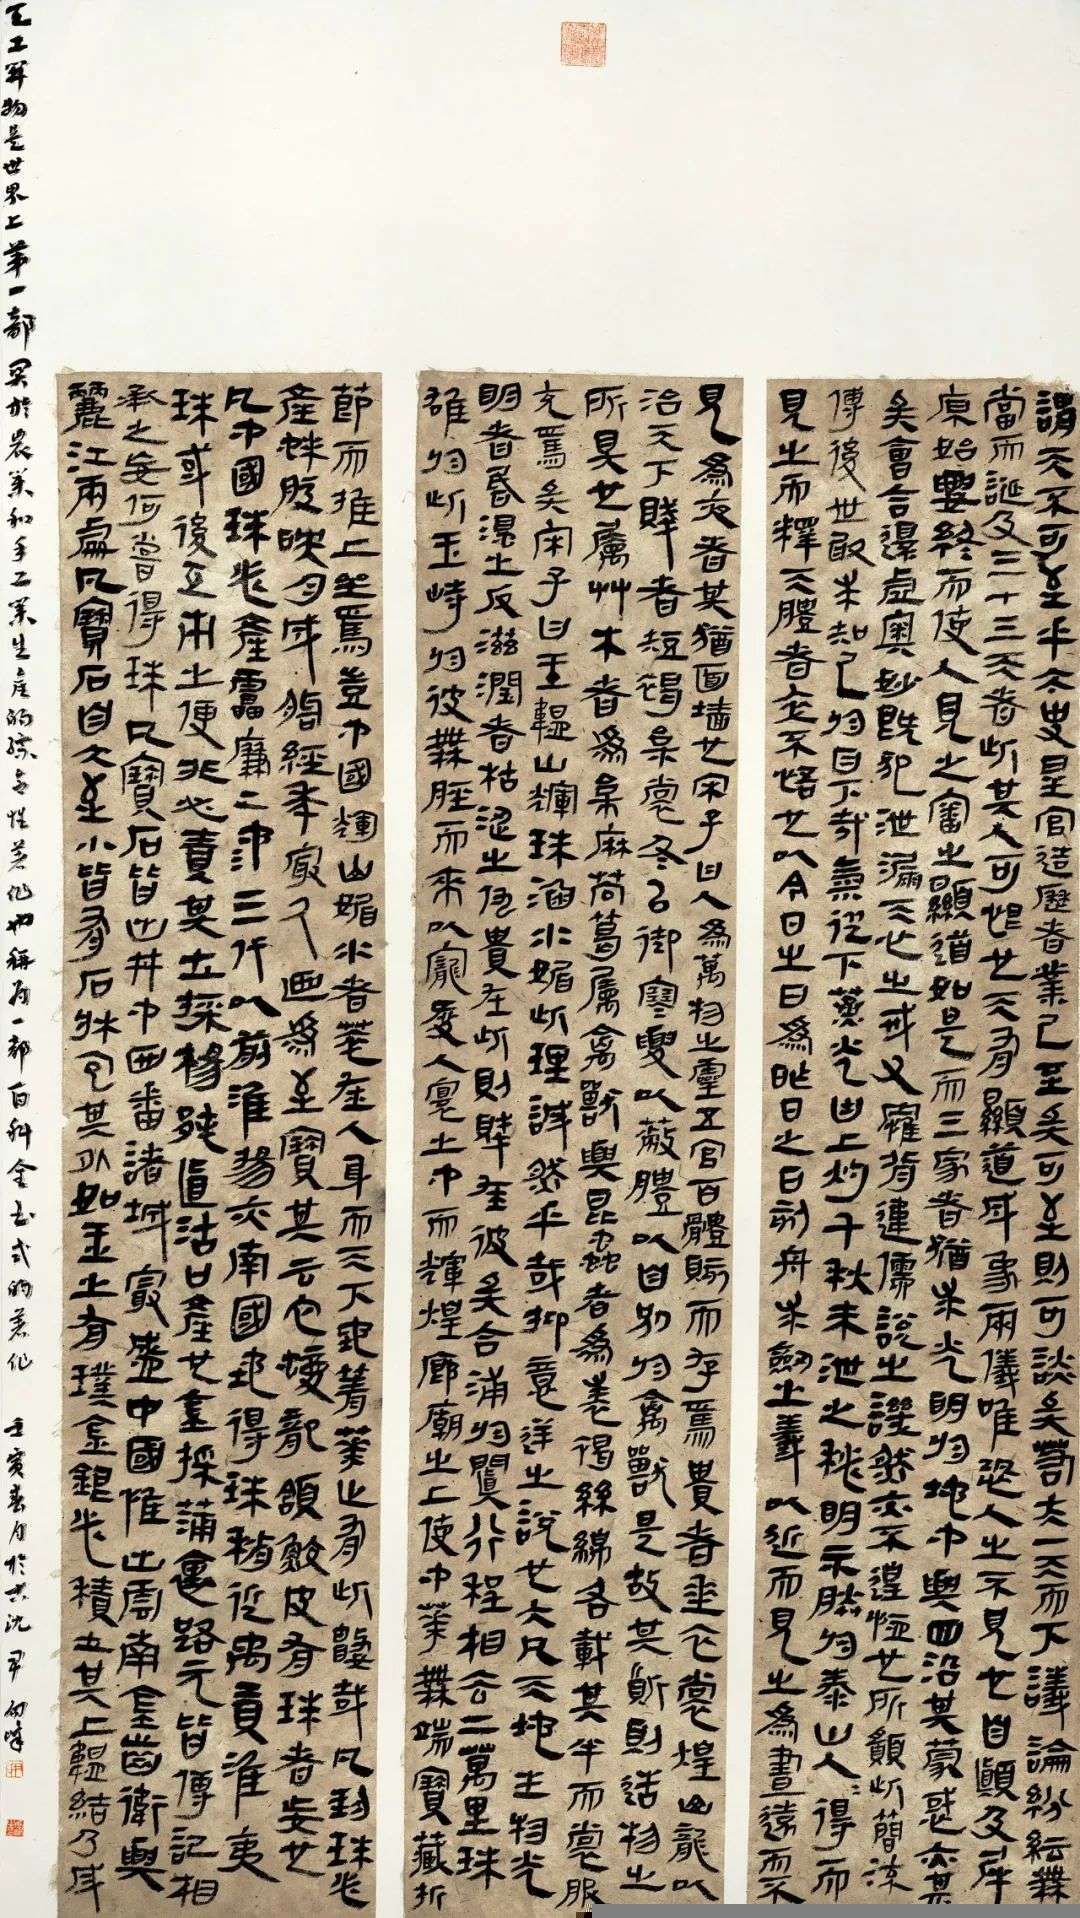 謂天不可至乎太史星官造歷者業已至矣可至則可談矣蒼夫一天而下議論紛紜無
當而誕及三十三天者此其人可誑也天有顯道成象兩儀唯恐人之不見也自顛及淬
原始要終而使人見之審之顯道如是而三家者猶未光明於地中與四沿其蒙惑亦甚
矣會合還虛奧妙既犯泄漏天心之戒又罹背違儒說之譏然亦不遑恤也所願此簡流
傳後世敢求知己於目下哉氣從下蒸光由上灼千秋未泄之秘明示朕於泰山人人得而
見之而釋天體者亦不悟也以今日之日為昨日之日刻舟求劍之義以近而見之為晝遠而不
見為夜者其猶面墻也宋子曰人為萬物之靈五官百體賅而存焉貴者垂衣裳煌山龍以
治天下賤者短褐枲裳冬以御寒夏以蔽體以自別於禽獸是故其質則造物之
所具也屬艸木者為枲麻苘葛屬禽獸與昆蟲者為裘褐絲綿各載其半而裳服
充焉矣宋子曰玉韞山輝珠涵水媚此理誠然乎哉抑意逆之說也大凡天地生物光
明者昏濁之反滋潤者枯澀之仇貴在此則賤在彼矣合浦於闐行程相去二萬里珠
雄於此玉峙於彼無脛而來以寵愛人寰之中而輝煌廊廟之上使中華無端寶藏折
節而推上坐焉豈中國輝山媚水者萃在人身而天下地菁華止有此數哉凡珍珠必
產蚌腹映月成胎經年最久迺為至寶其云蛇蝮龍頷鮫皮有珠者妄也
凡中國珠必產雷廉二池三代以前淮揚亦南國地得珠稍近禹貢淮夷
珠或後互市之便非必責其土採楊邨直沽口產也金採蒲里路元皆傳記相
承之妄何嘗得珠凡寶石皆出井中西番諸域最盛中國惟出雲南金齒衛與
麗江兩處凡寶石自大至小皆有石牀包其外如玉之有璞金銀必積土其上韞結乃成
天工開物是世界上第一部關於農業和手工業生產的綜合性著作也稱為一部百科全書式的著作 壬寅春月於大沈尹海峰